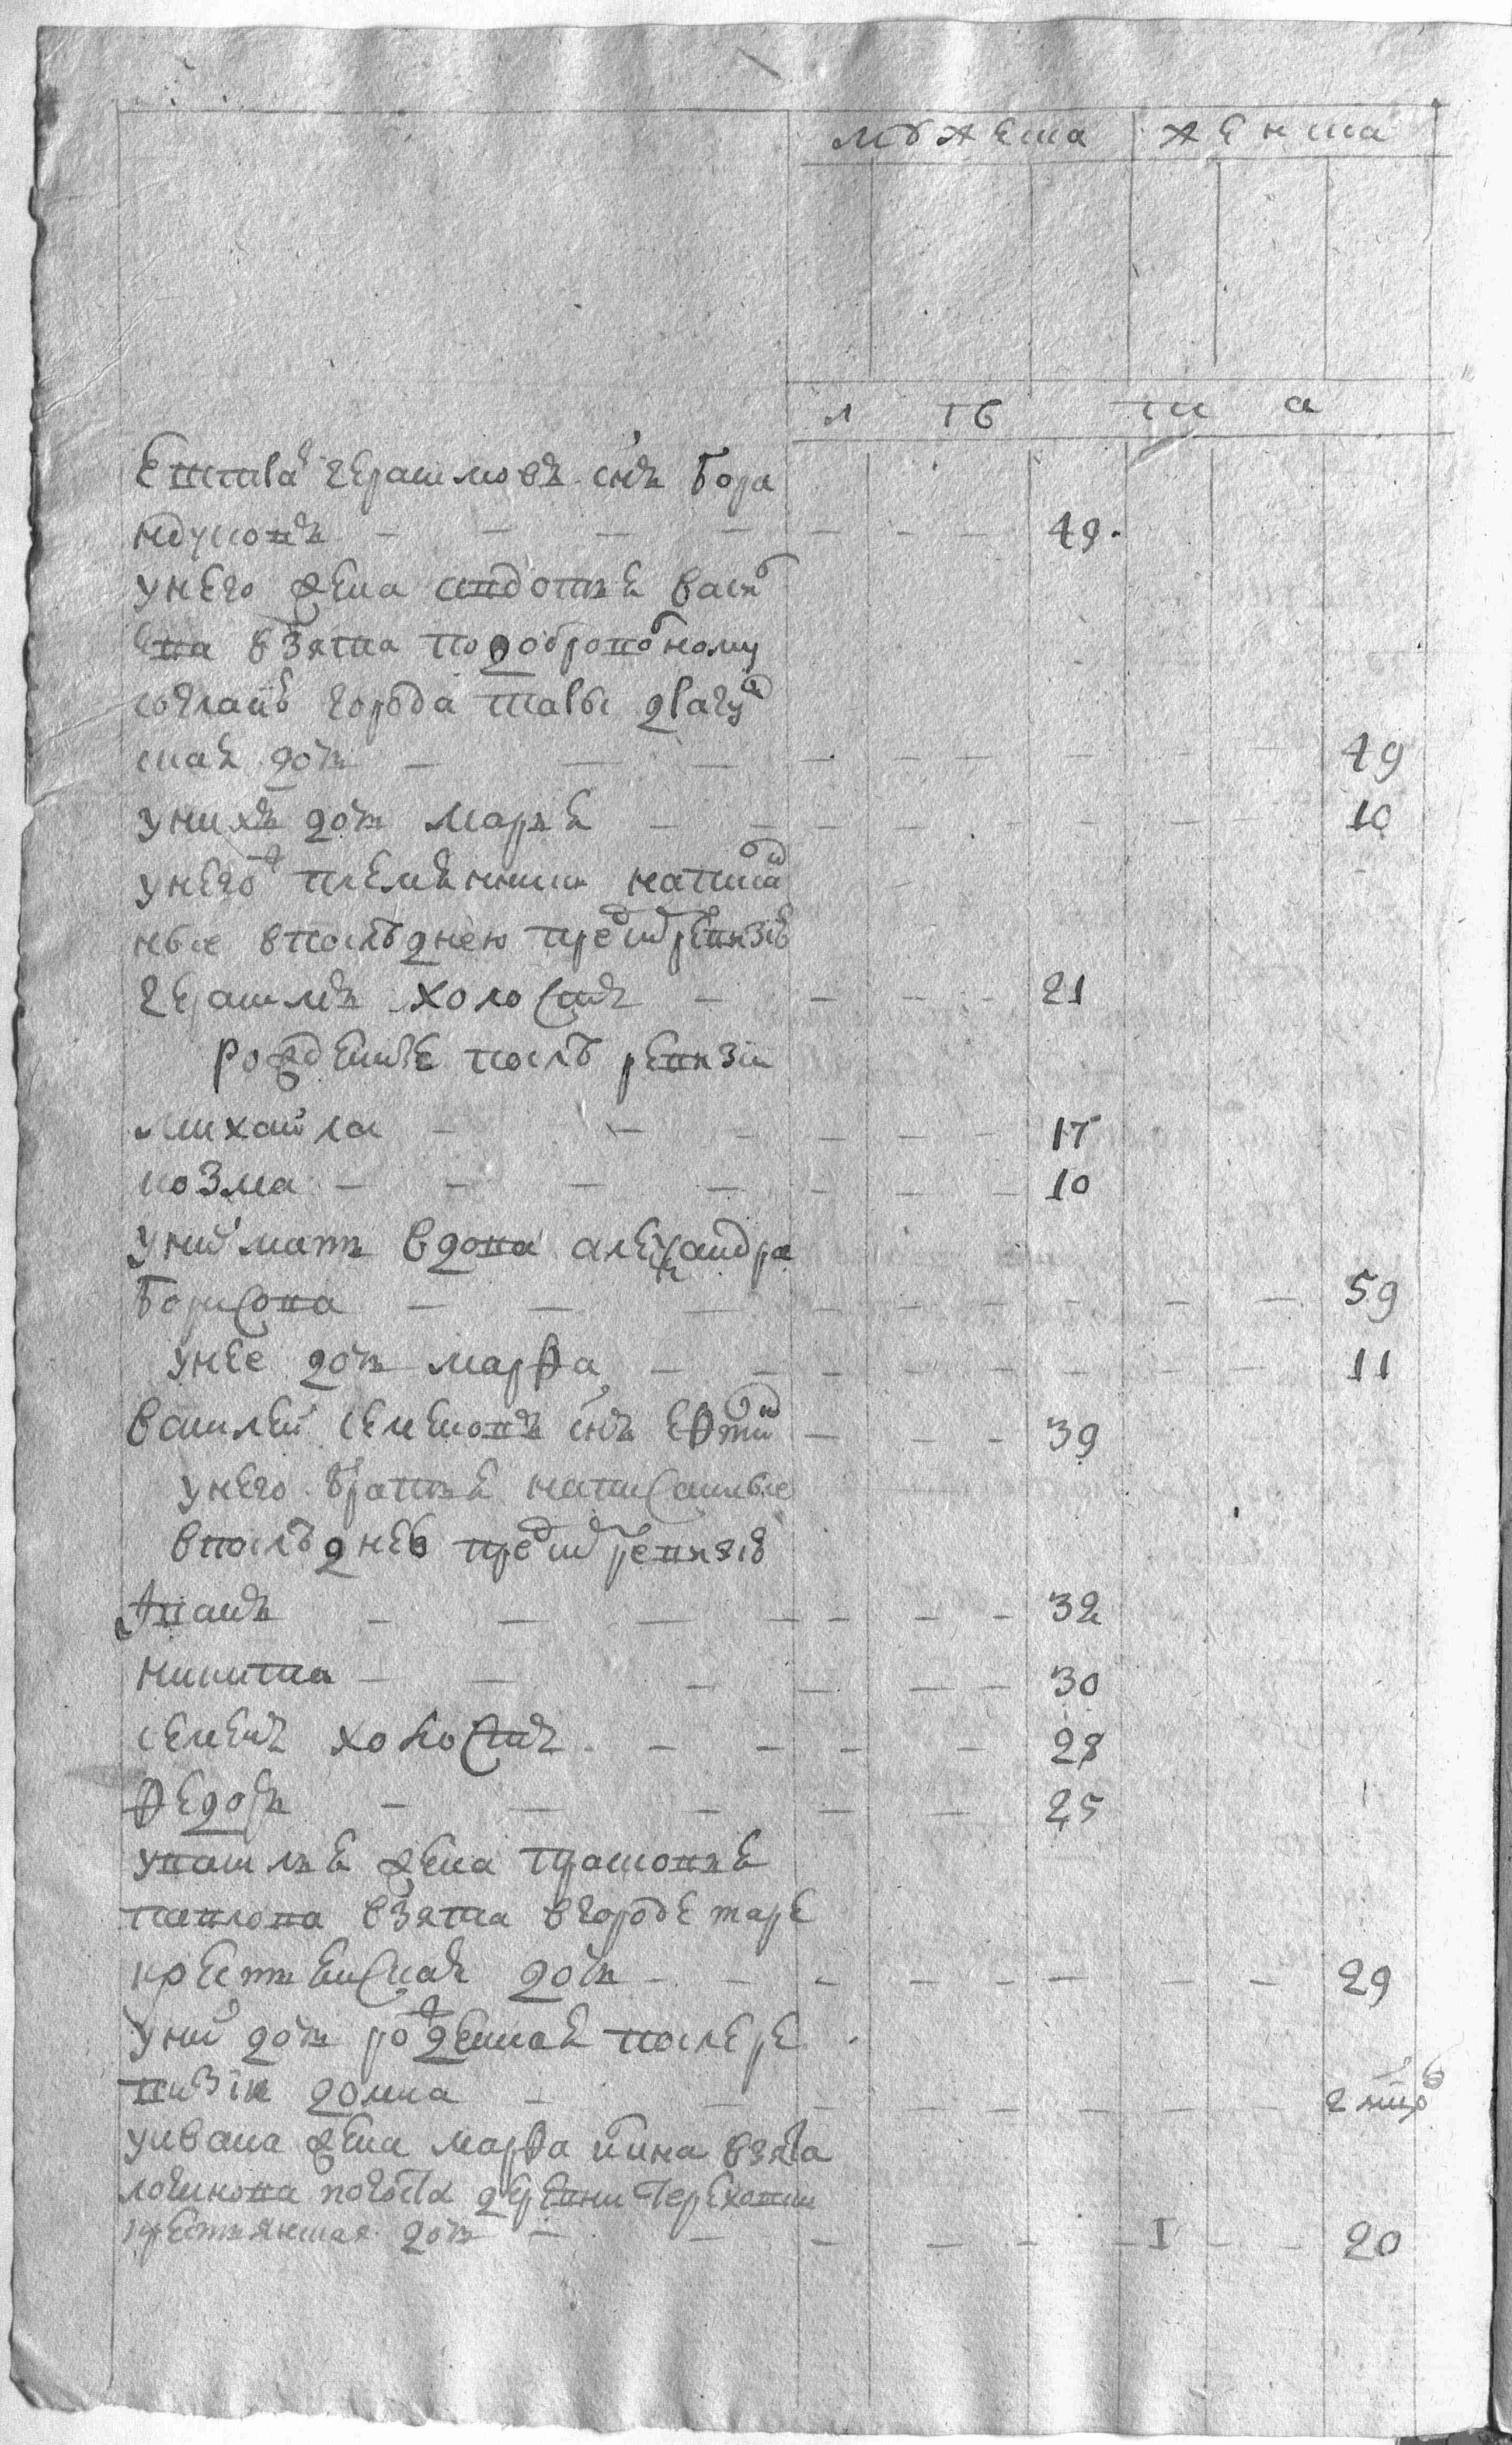 мужеска женска
лѣ та
Евстаѳей герасимовъ снъ бора
ндуковъ 49
унего жена авдотья васил
ева взята подоброволному
согласию города тары
ская дочь 49
унихъ дочь марья 10
унегож племянники написан
ные впоследнею пред сим ревизию
герасимъ холостъ 21
рожденные после ревизии
михайла 17
козма 10
уних мать вдова александра
борисова 59
унее дочь марфа 11
василей семеновъ снъ
унего братья написанные
впоследнею пред сим ревизию
иванъ 32
никита 30
семенъ холостъ 28
федоръ 25
увасилья жена прасковья
павлова взята вгороде таре
крестьянская дочь 29
уних дочь рожденная после ре
визии домна 2 мцов
уивана жена марфа взята
логинова погоста деревни Тереховки
крестьянская дочь 1 20